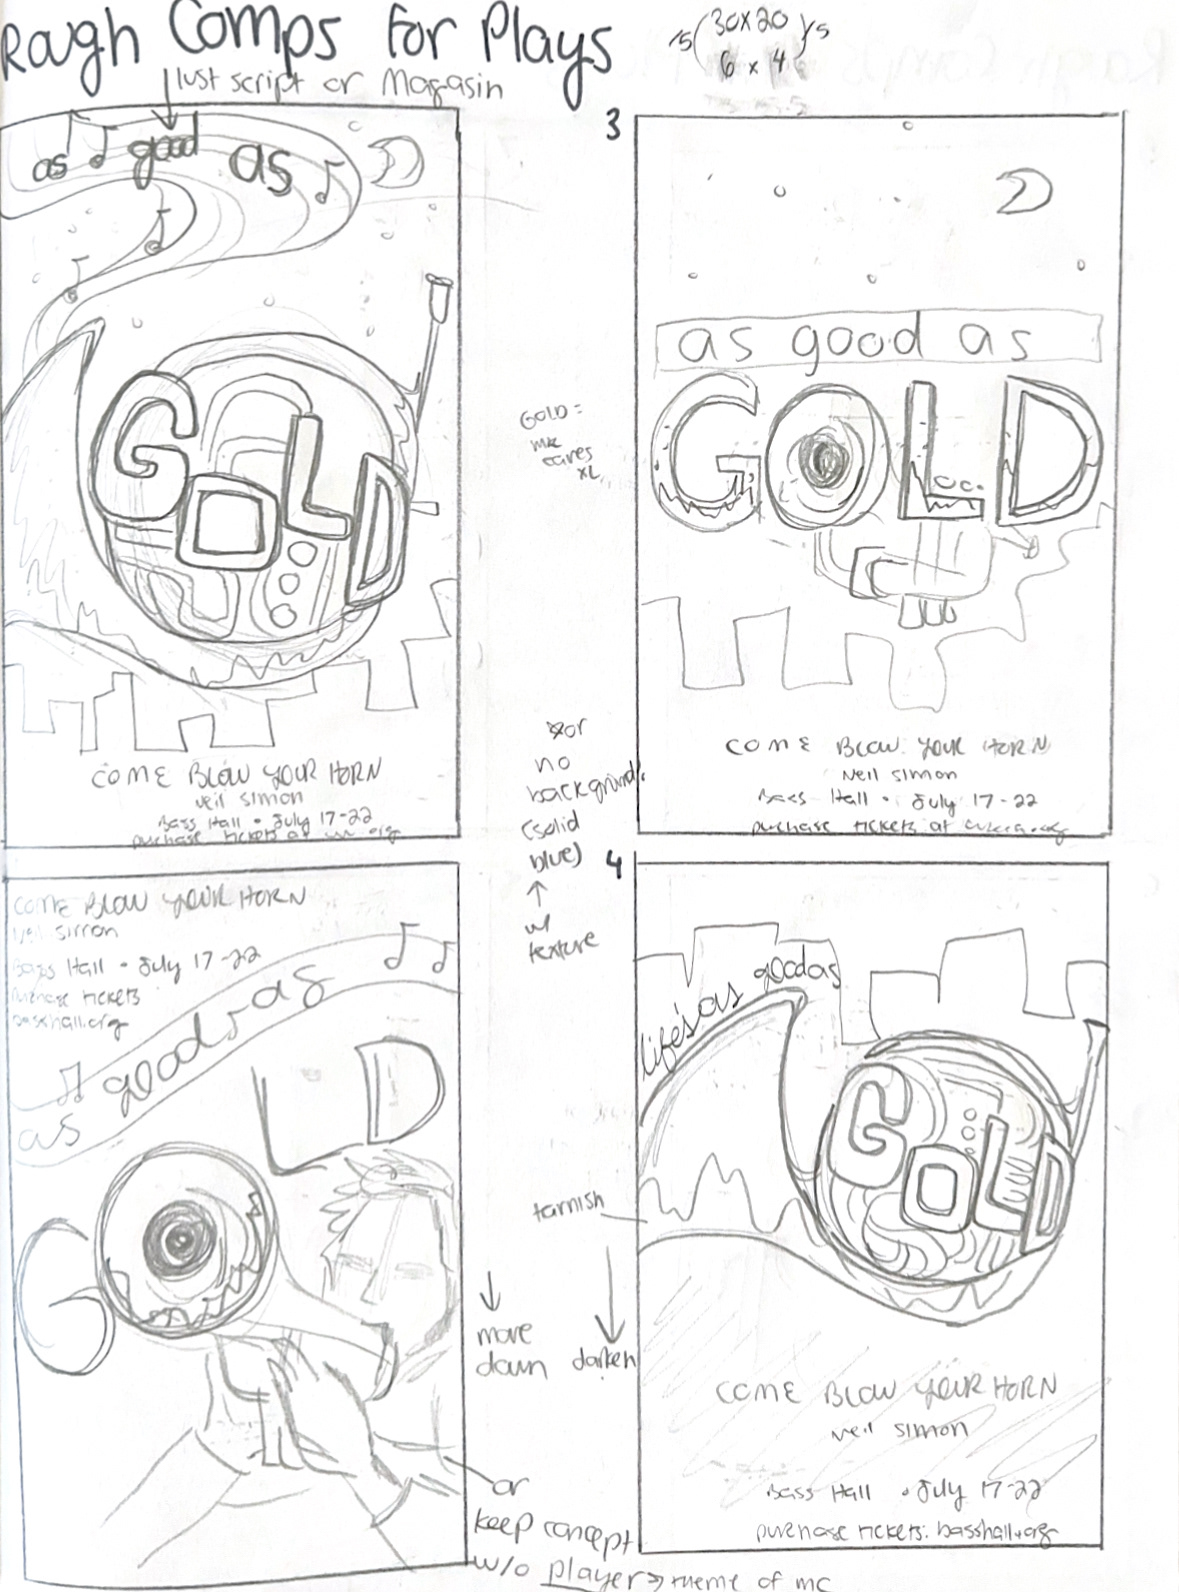 Rough Comps for Plays
15(30x20)5
6 x 4
lust script or Magasin
as good as
GOLD
COME BLOW YOUR HORN
neil simon
Bass Hall • July 17-22
purchase tickets at
3
as good as
GOLD
COME BLOW YOUR HORN
neil simon
Bass Hall • July 17-22
purchase tickets at
GOLD =
XL
or
no
background
(solid
blue)
w/
texture
COME BLOW YOUR HORN
neil simon
Bass Hall • July 17-22
purchase tickets
basshall.org
as good as
GOLD
move
down
or
keep concept
w/o player → theme of mc
4
life's as good as
GOLD
tarnish
darken
COME BLOW YOUR HORN
neil simon
Bass Hall • July 17-22
purchase tickets: basshall.org